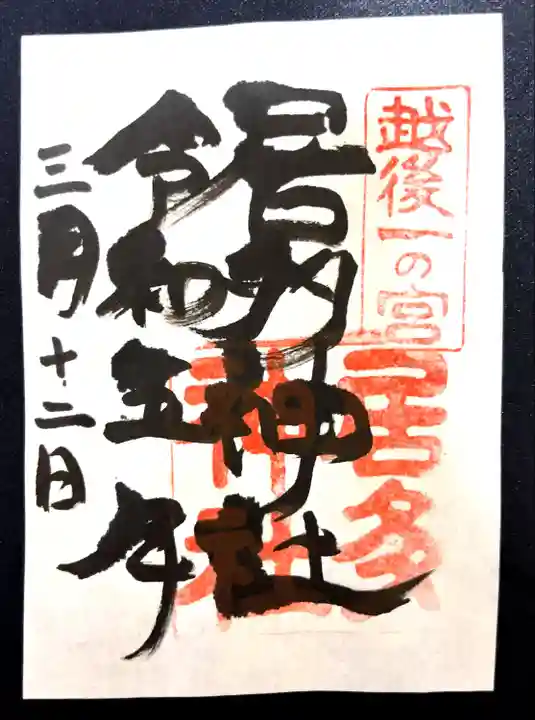 越後一の宮
居多
神社
居多神社
令和五年
三月十二日